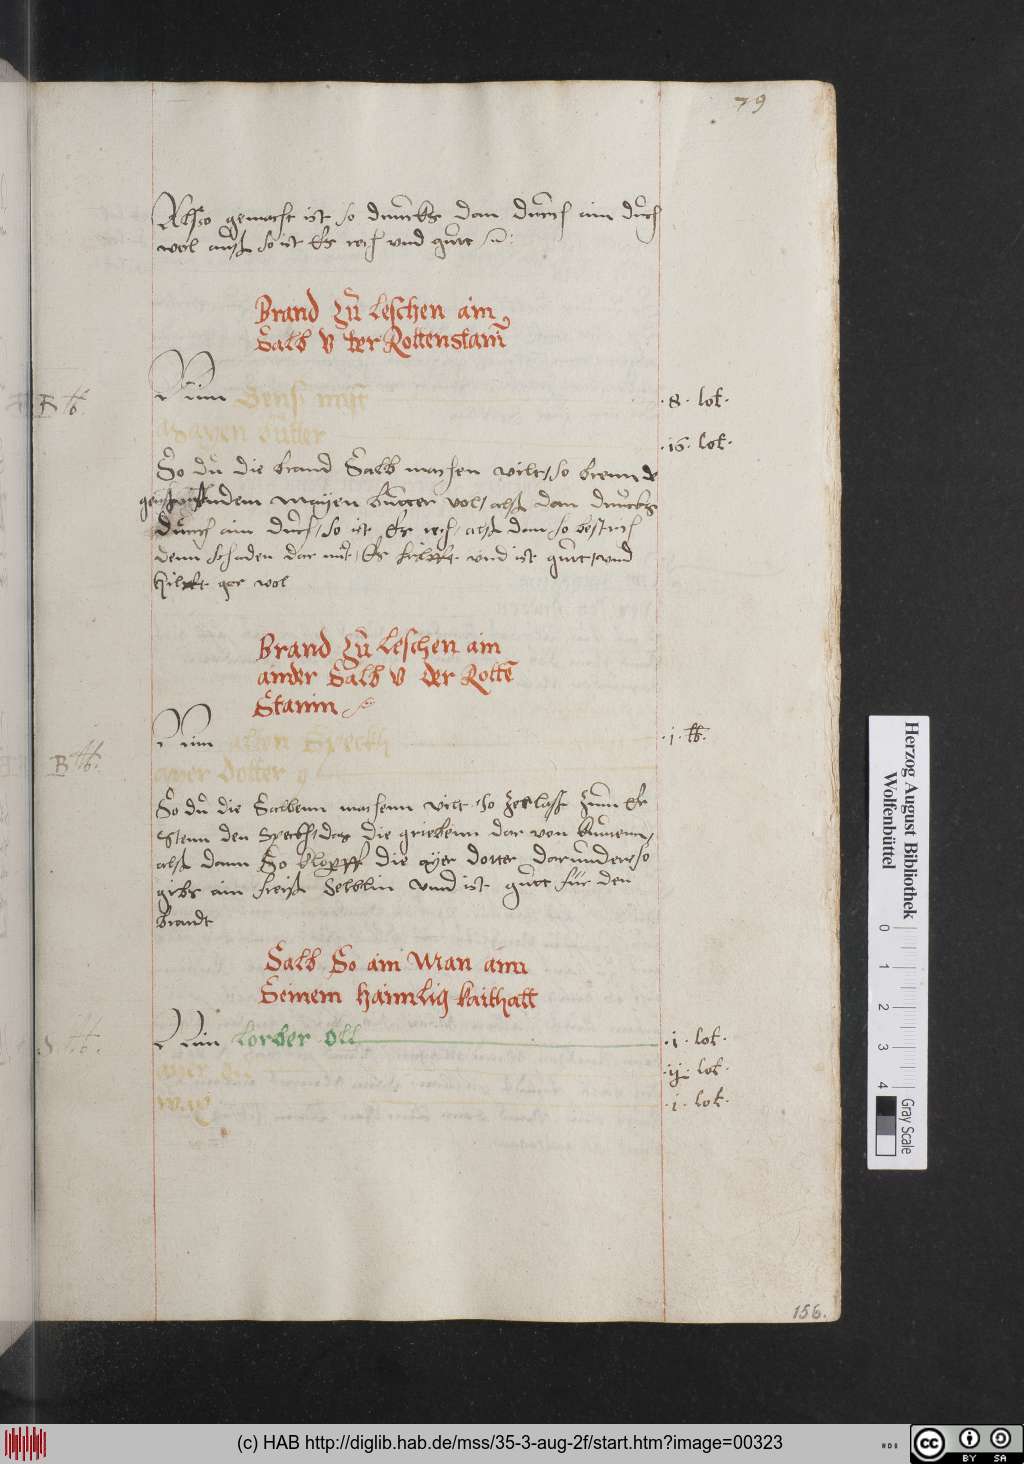 79
Also gemacht ist so druckhs dan durch ain duͦch
wol auß so ist Es rech vnd guͦtt
Brand Zuͦ Leschen ain
Salb v der Rottenstain
Nim Gens myst
·8· lot·
Mayen butter
·16· lot·
So duͦ die brand Salb machen wilt / so brenn de
gensmist Inndem Mayen butter wol / alß dan druckhs
durch ain duͦch / so ist Es rech / alß dan so bestrich
denn schaden dar mit / Es hilfft vnd ist guͦtt / vnd
hilfft gar wol
Brand Zuͦ Leschen ain
ander Salb v der Rotte
Stainin
Nim alten Speckh
·j· lb·
ayer Dotter ij
So duͦ die Salbenn machenn wilt so Zerlaß Zum Er
Stenn den Speckh / das die griebenn dar von kumenn /
alß dann So klopff die ayer dotter darunder / so
gibs ain Selblin vnnd ist guͦtt für den
brandt
Salb So ain Man ann
Seinem haimlig kaithatt
Nim lorber oll
·j· lot·
ayer oll
·ij· lot·
·j· lot·
156.
Herzog August Bibliothek
Wolfenbüttel
0 1 2 3 4
Gray Scale
(c) HAB http://diglib.hab.de/mss/35-3-aug-2f/start.htm?image=00323
cc BY SA